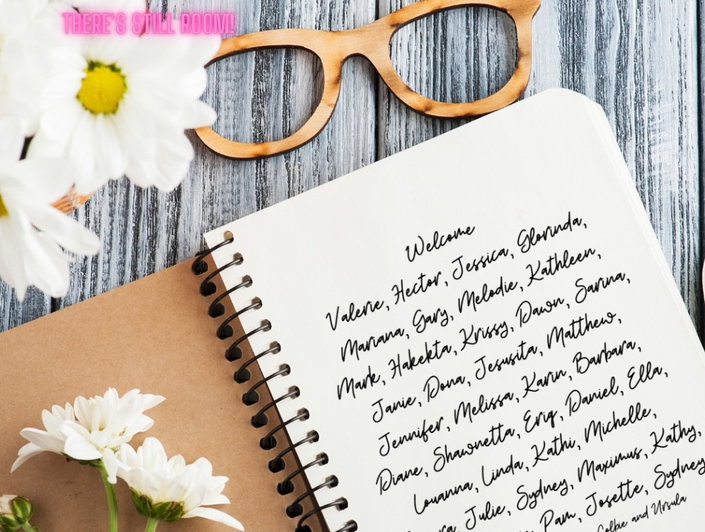 THERE'S STILL ROOM!
Welcome
Valerie, Hector, Jessica, Glorinda,
Mariana, Gary, Melodie, Kathleen,
Mark, Hakekta, Krissy, Dawn, Sarina,
Janie, Dona, Jesusita, Matthew,
Jennifer, Melissa, Karin, Barbara,
Diane, Shawnetta, Eriq, Daniel, Ella,
Louanna, Linda, Kathi, Michelle,
Julie, Sydney, Maximus, Kathy,
Pam, Josette, Sydney
and Ursula